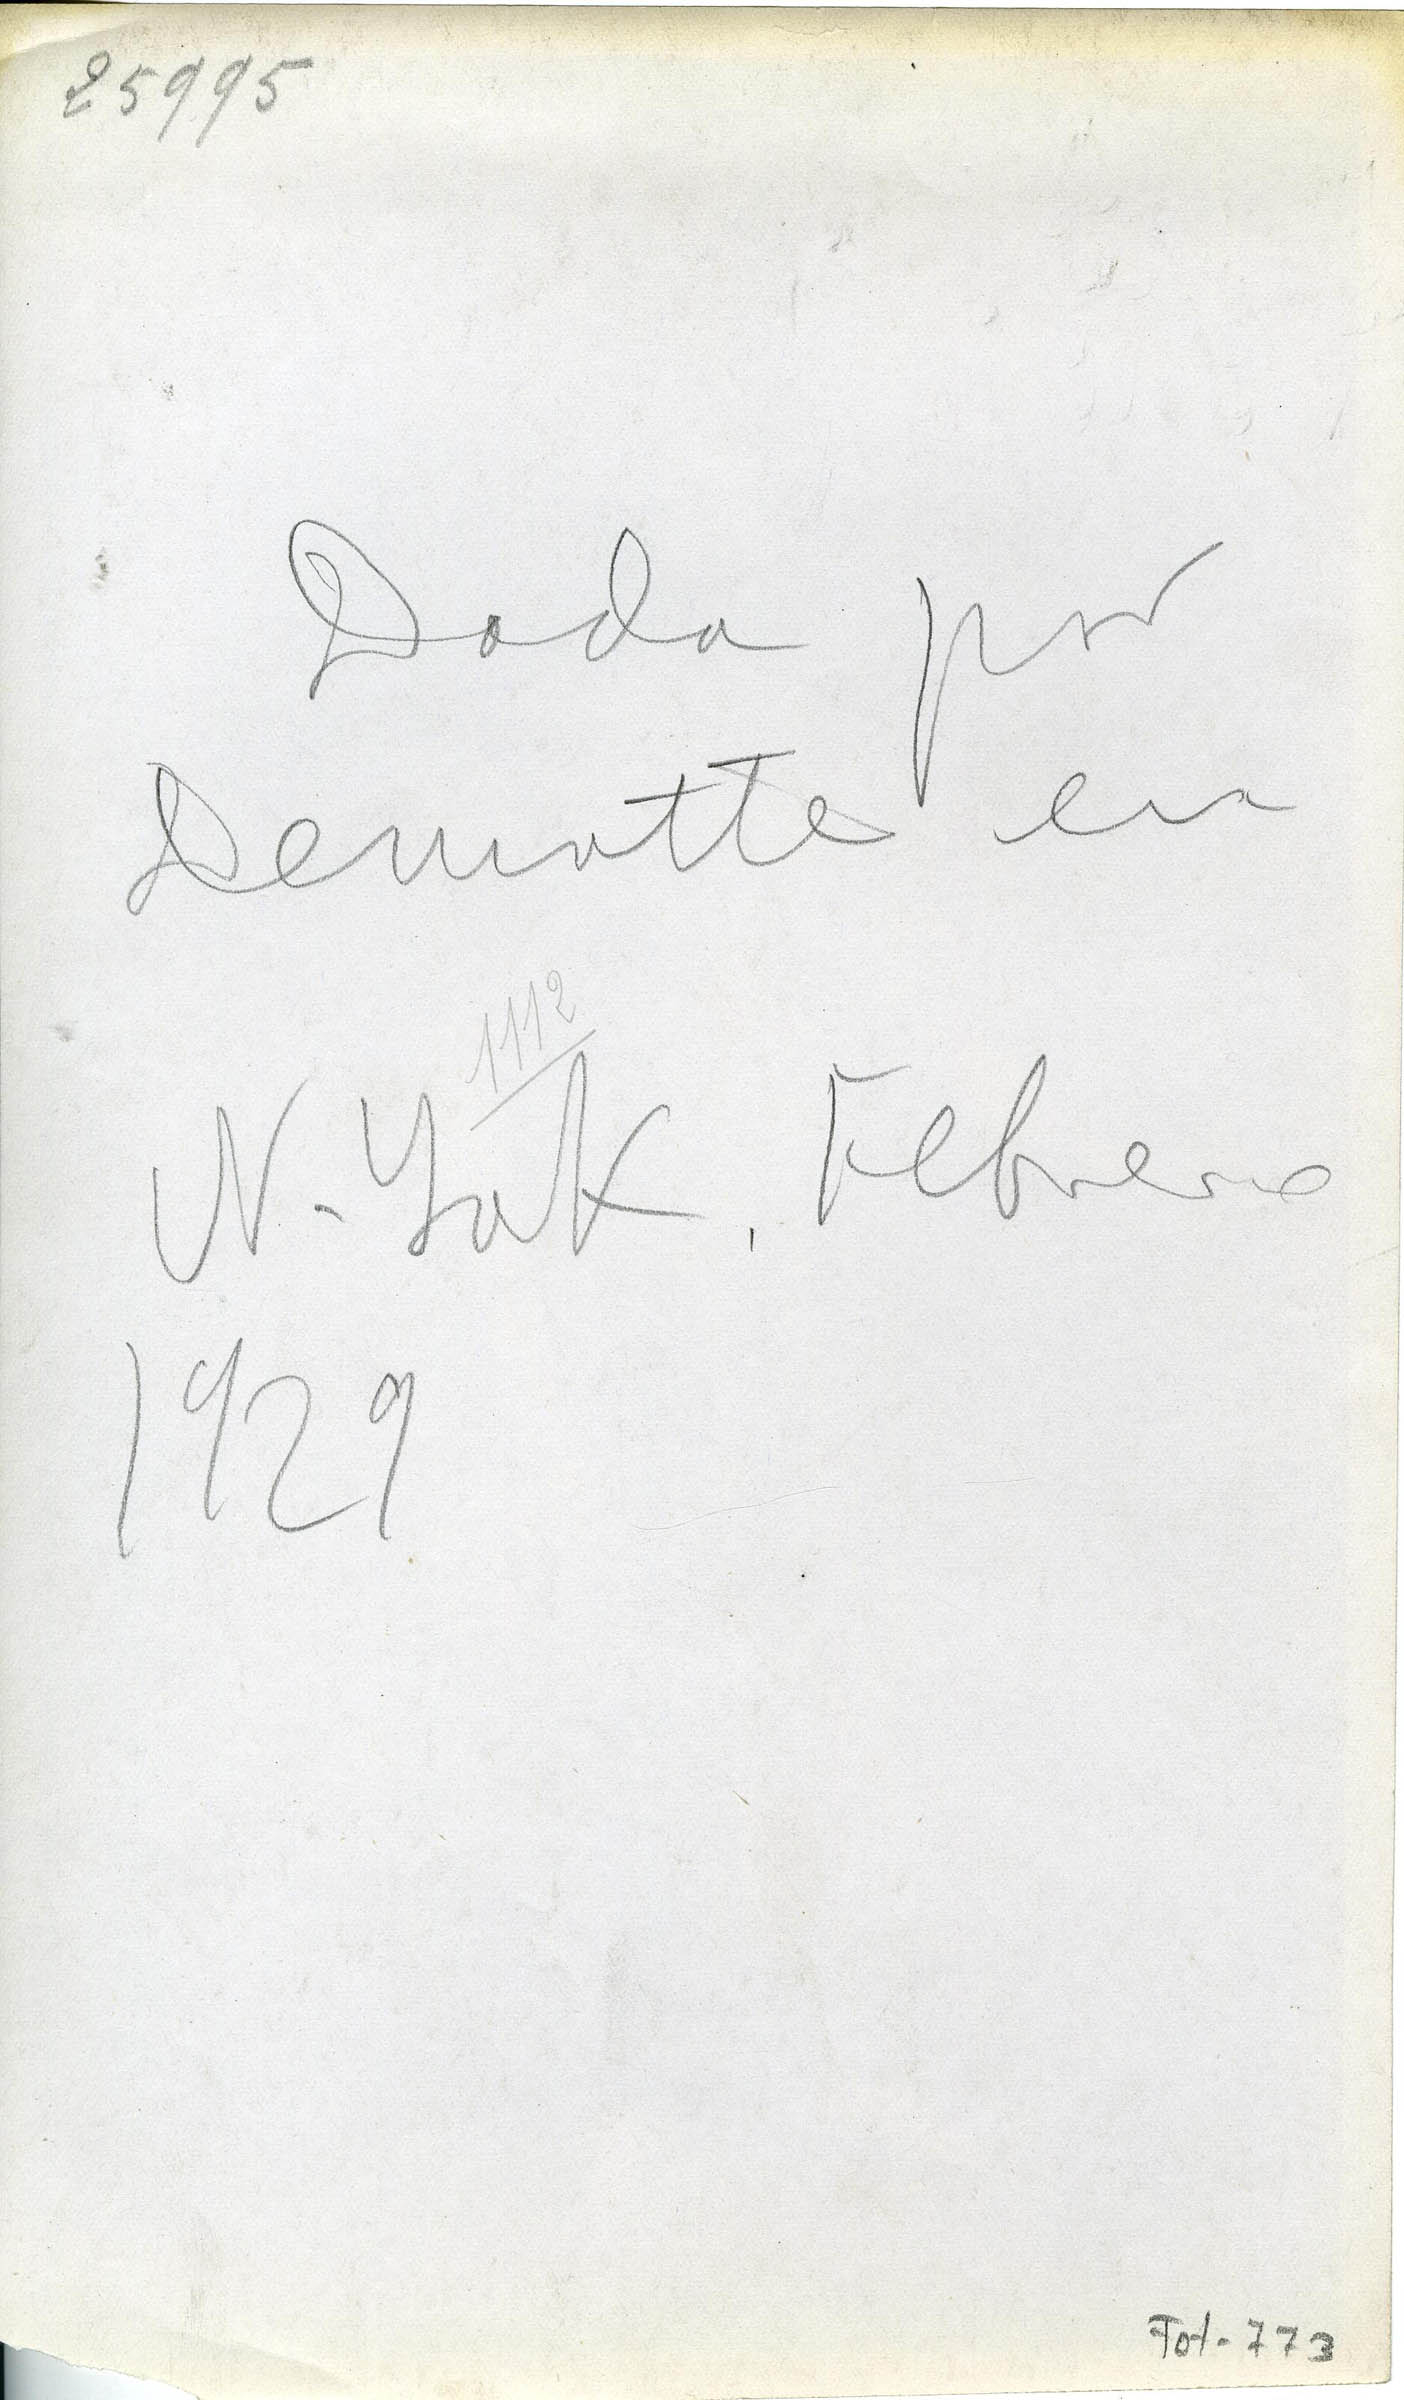 25995
Dada por
Demotte en
1112
N-York, Febrero
1929
Fot-773